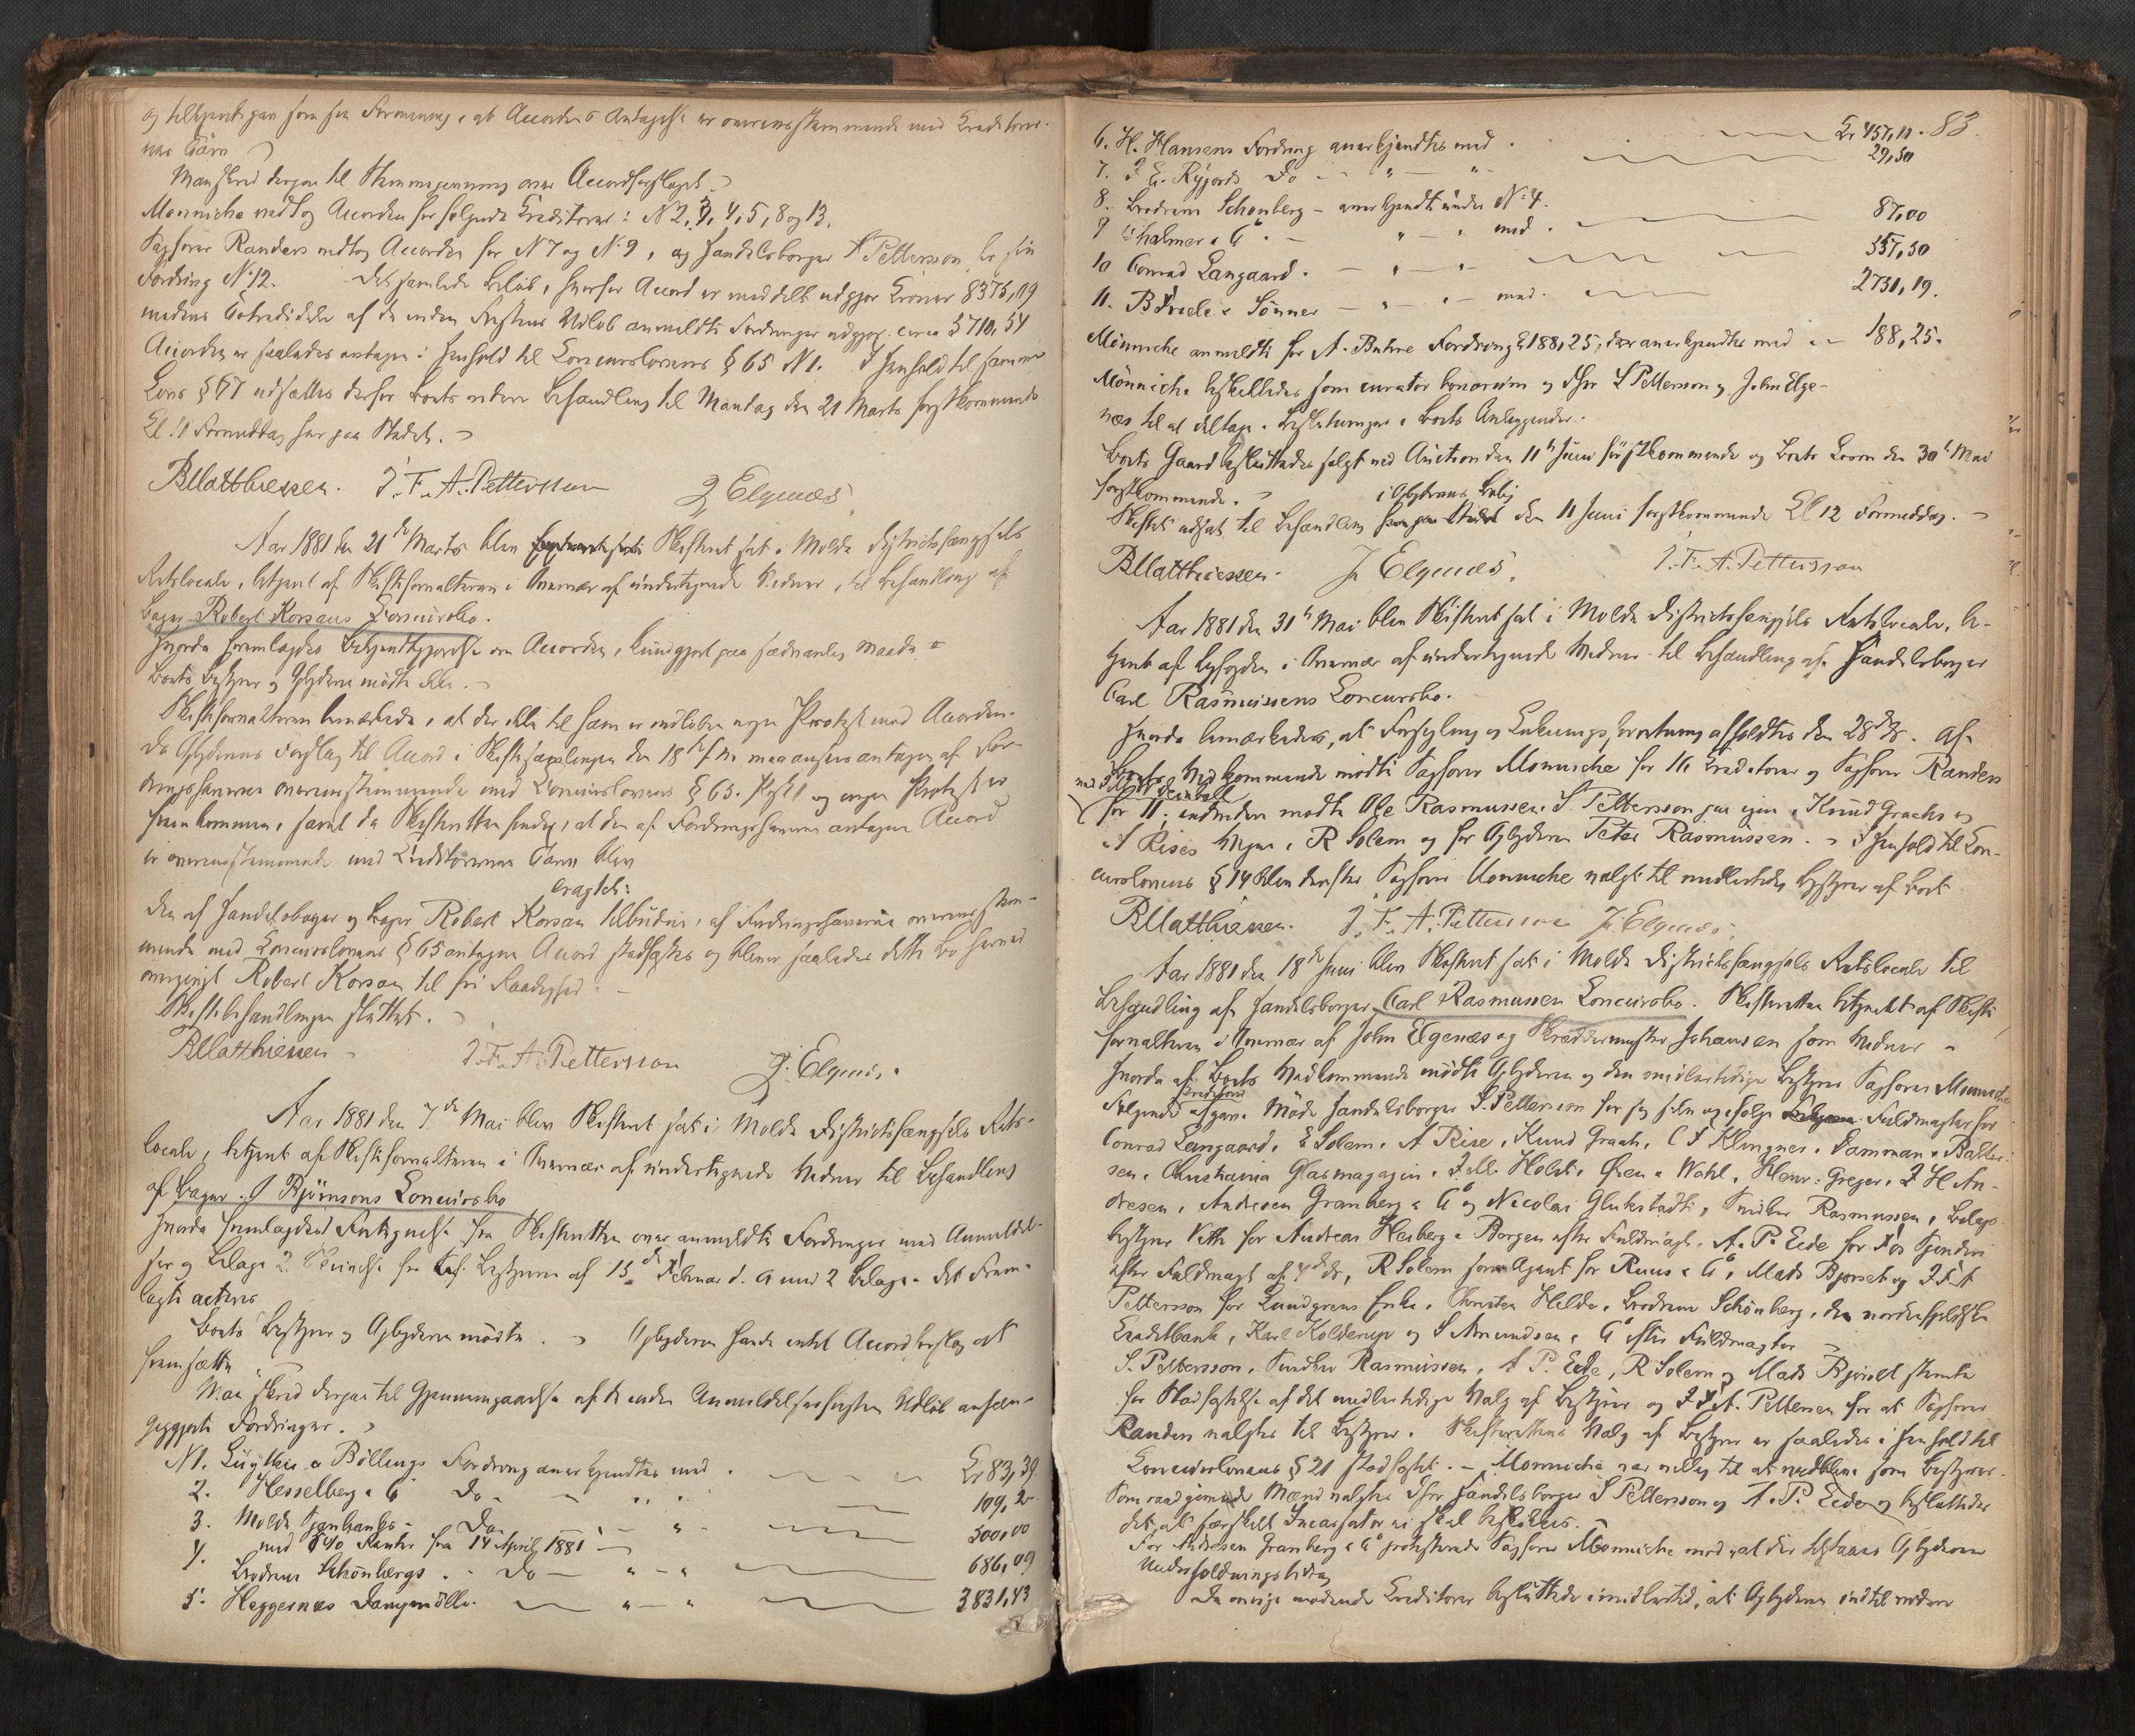 og tilkjendegav som sin Formening, at Accordens Antagelse er overensstemmende med Creditorer-
nes Tarv
Man skred derpaa til Stemmegivning over Accordforslaget
Mønniche vedtog Accorden for følgende Creditorer: N 2, 3, 4, 5, 8 og 13.
Sagfører Randers vedtog Accorden for N 7 og N 9, og Handelsborger Pettersson for sin
Fordring N 12. Det samlede Beløb, hvorfor Accord er meddelt udgjør Kroner 8375,09
medens Totalbeløbet af de inden Fristens Udløb anmeldte Fordringer udgjør circa 3710,54
Accorden er saaledes antagen i Henhold til Concurslovens § 65 N 1. I Henhold til samme
Lovs § 67 udsættes derfor Boets videre Behandling til Mandag den 21 Marts førstkommende
Kl. 11 Formiddag her paa Stedet.
BMatthiessen. J. F. A. Pettersson J Elgenæs
Aar 1881 den 21de Marts blev Skifteret sat i Molde Distriktsfængsels
Retslocale, betjent af Skifteforvalteren i Overvær af undertegnede Vidner, til Behandling af
Bager Robert Korsans Concursbo.
Hvorda fremlagdes Bekjendtgjørelse om Accorden, kundgjort paa sædvanlig Maade
Boets Bestyrer og Opbyderen mødte ikke.
Skifteforvalteren bemærkede, at der ikke til ham er indløben nogen Protest mod Accorden.
Da Opbyderens Forslag til Accord i Skiftesamlingen den 18de f. M. maa ansees antagen af For-
dringshaverne overensstemmende med Concurslovens § 65. Post 1 og ingen Protest er
fremkommen, samt da Skifteretten finder, at den af Fordringshaverne antagne Accord
er overensstemmende med Creditorernes Tarv blev
eragtet:
Den af Handelsborger og Bager Robert Korsan tilbudne, af Fordringshaverne overensstem-
mende med Concurslovens § 65 antagne Accord stadfæstes og bliver saaledes dette Bo herved
overgivet Robert Korsan til fri Raadighed.
Skiftebehandlingen sluttet.
BMatthiessen J. F. A. Pettersson J. Elgenæs.
Aar 1881 den 7de Mai blev Skifteret sat i Molde Distriktsfængsels Rets-
locale, betjent af Skifteforvalteren i Overvær af undertegnede Vidner til Behandling
af Bager J Bjørnsons Concursbo
Hvorda fremlagdes Fortegnelse fra Skifteretten over anmeldte Fordringer med Anmeldel-
ser og Bilage 2. Skrivelse fra Bestyreren af 15de Februar d. A med 2 Bilage. Det Frem-
lagte acteres
Boets Bestyrer og Opbyderen mødte. Opbyderen havde intet Accordforslag at
fremsætte
Man skred derpaa til Gjennemgaaelse af de inden Anmeldelsesfristens Udløb anmeldte
Fordringer.
N 1. Bøllings Fordring anerkjendtes med Kr 83,39
2. Hesselberg & C Do 109,20
3. Molde Sparebanks Do 300,00
med 5% Renter fra 14 April 1881
4. Brødrene Schønbergs Do 686,09
5. Heggernæs Dampmølle 3831,43
83.
6. H. Hansens Fordring anerkjendtes med Kr 457,11
7. J E. Ryjords Do 29,50
8. Brødrene Schønberg anerkjendt under N 4.
9 Chalmer & C° med 87,00
10 Conrad Langaard. 357,50
11. B & Sønner med 2731,19.
Mønniche anmeldte for A. Buhre Fordring 188,25, der anerkjendtes med 188,25.
Mønniche beskikkedes som curator bonorum og DHrr S Pettersson og John Elge-
næs til at deltage i Beslutninger i Boets Anliggender.
Boets Gaard besluttedes solgt ved Auction den 11te Juni førstkommende og Boets Løsøre den 30te Mai
førstkommende. i Opbyderens Bolig
Skiftet udsat til Behandling her paa Stedet den 11 Juni førstkommende Kl 12 Formiddag.
BMatthiessen. J Elgenæs. J. F. A. Pettersson
Aar 1881 den 31te Mai blev Skifteret sat i Molde Distriktsfængsels Retslocale, be-
tjent af Byfogden i Overvær af undertegnede Vidner til Behandling af Handelsborger
Carl Rasmussens Concursbo.
Hvorda bemærkedes, at Forsegling og Registreringsforretning afholdtes den 28de ds. Af
Boets Vedkommende mødte Sagfører Mønniche for 16 Creditorer og Sagfører Randers
for 11. Endvidere mødte Ole Rasmussen, S. Pettersson paa egne, Knud Graahs og
A Rises Vegne, R Solem og for Opbyderen Peter Rasmussen. I Henhold til Con-
curslovens § 14 blev derefter Sagfører Mønniche valgt til midlertidig Bestyrer af Boet
BMatthiessen. J. F. A. Pettersson J. Elgenæs.
Aar 1881 den 18de Juni blev Skifteret sat i Molde Distriktsfængsels Retslocale til
Behandling af Handelsborger Carl Rasmussen Concursbo. Skifteretten betjent af Skifte-
forvalteren i Overvær af John Elgenæs og Skræddermester Johansen som Vidner
Hvorda af Boets Vedkommende mødte Opbyderen og den midlertidige Bestyrer Sagfører Mønniche
Følgende Creditorer gave Møde Handelsborger S. Pettersson for sig selv og ifølge Fuldmagter for
Conrad Langaard, E Solem, A Rise, Knud Graah, C J Klingner, Damman, Balter-
sen, Christiania Glasmagazin, Jell. Holdt, Øien & Wahl, Henr. Greger, J H An-
dresen, Andresen Granberg & C° og Nicolai Glukstadt, Snidker Rasmussen, Belags-
bestyrer Vith for Andreas Heiberg i Bergen efter Fuldmagt, A. P. Eide for
efter Fuldmagt af ds, R Solem som Agent for Ruus & C°, Mads Bjørset og J F A
Pettersson for Lundgrens Enke, Christen Helde, Brødrene Schønberg, den nordenfjeldske
Creditbank, Karl Kolderup og S Amundsen & C° efter Fuldmagter
S. Pettersson, Snidker Rasmussen, A P. Eide, R Solem og Mads Bjørset stemte
for Stadfæstelse af det midlertidige Valg af Bestyrer og J F A. Pettersen for at Sagfører
Randers valgtes til Bestyrer. Skifterettens Valg af Bestyrer er saaledes i Henhold til
Concurslovens § 21 stadfæstet. Mønniche var villig til at vedblive som Bestyrer.
Som raadgivende Mænd valgtes DHrr Handelsborger S Pettersson og A. P. Eide og besluttedes
det, at særskilt Incassator ei skal beskikkes.
For Andresen Granberg & C° protesterede Sagfører Mønniche mod, at der tilstaaes Opbyderen
Underholdningsbidrag
De øvrige mødende Creditorer besluttede imidlertid, at Opbyderen indtil videre